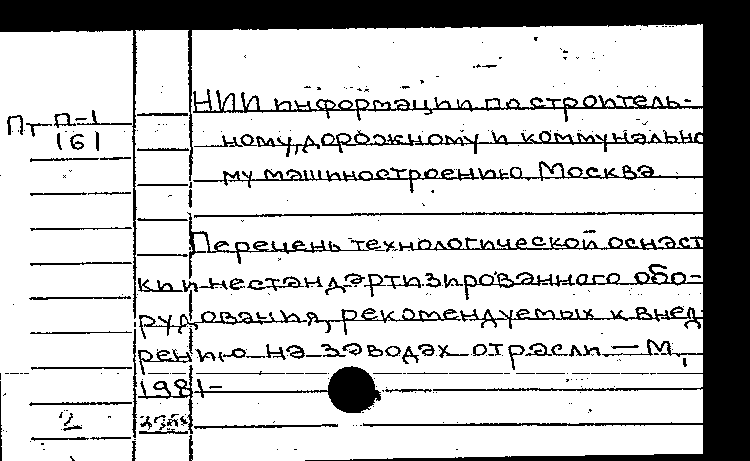 НИИ информации по строитель-
Пт П-1
161
ному, дорожному и коммунально
му машиностроению. Москва
Перечень технологической оснаст
ки и нестандартизированного обо-
рудования, рекомендуемых к внед-
рению на заводах отрасли. — М.,
1981-
2